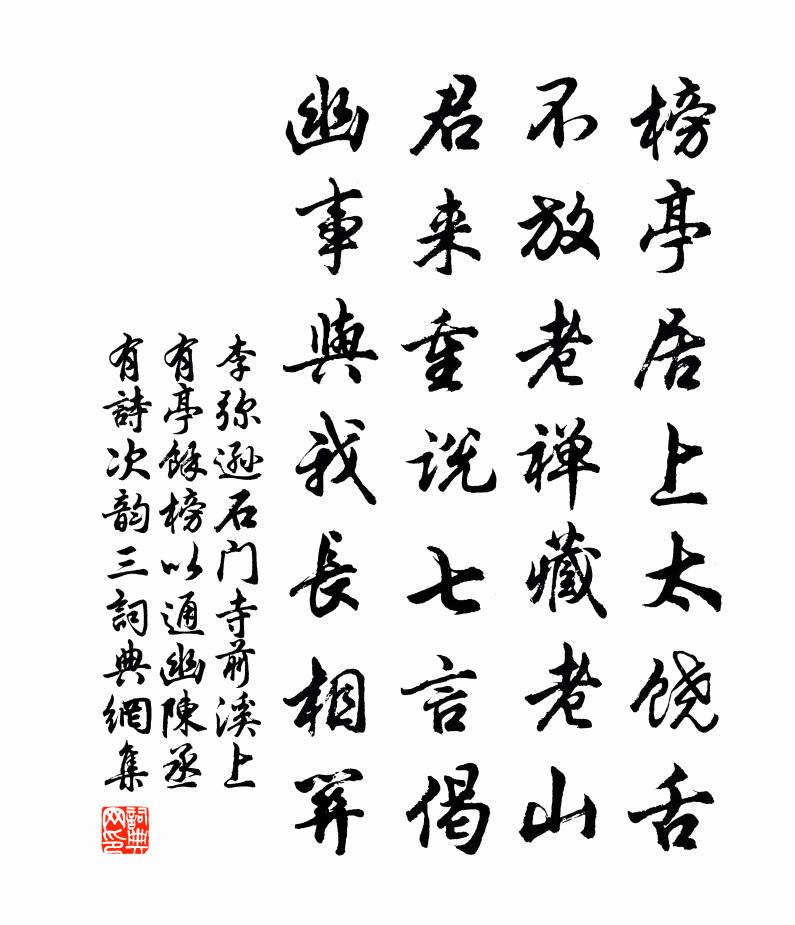 榜亭居上太饶舌
不放老禅藏老山
君来重说七言偈
幽事與我長相関
李弥逊石门寺前溪上
有亭餘榜以通幽陳丞
有詩次韵三詞典網集
詞典网印